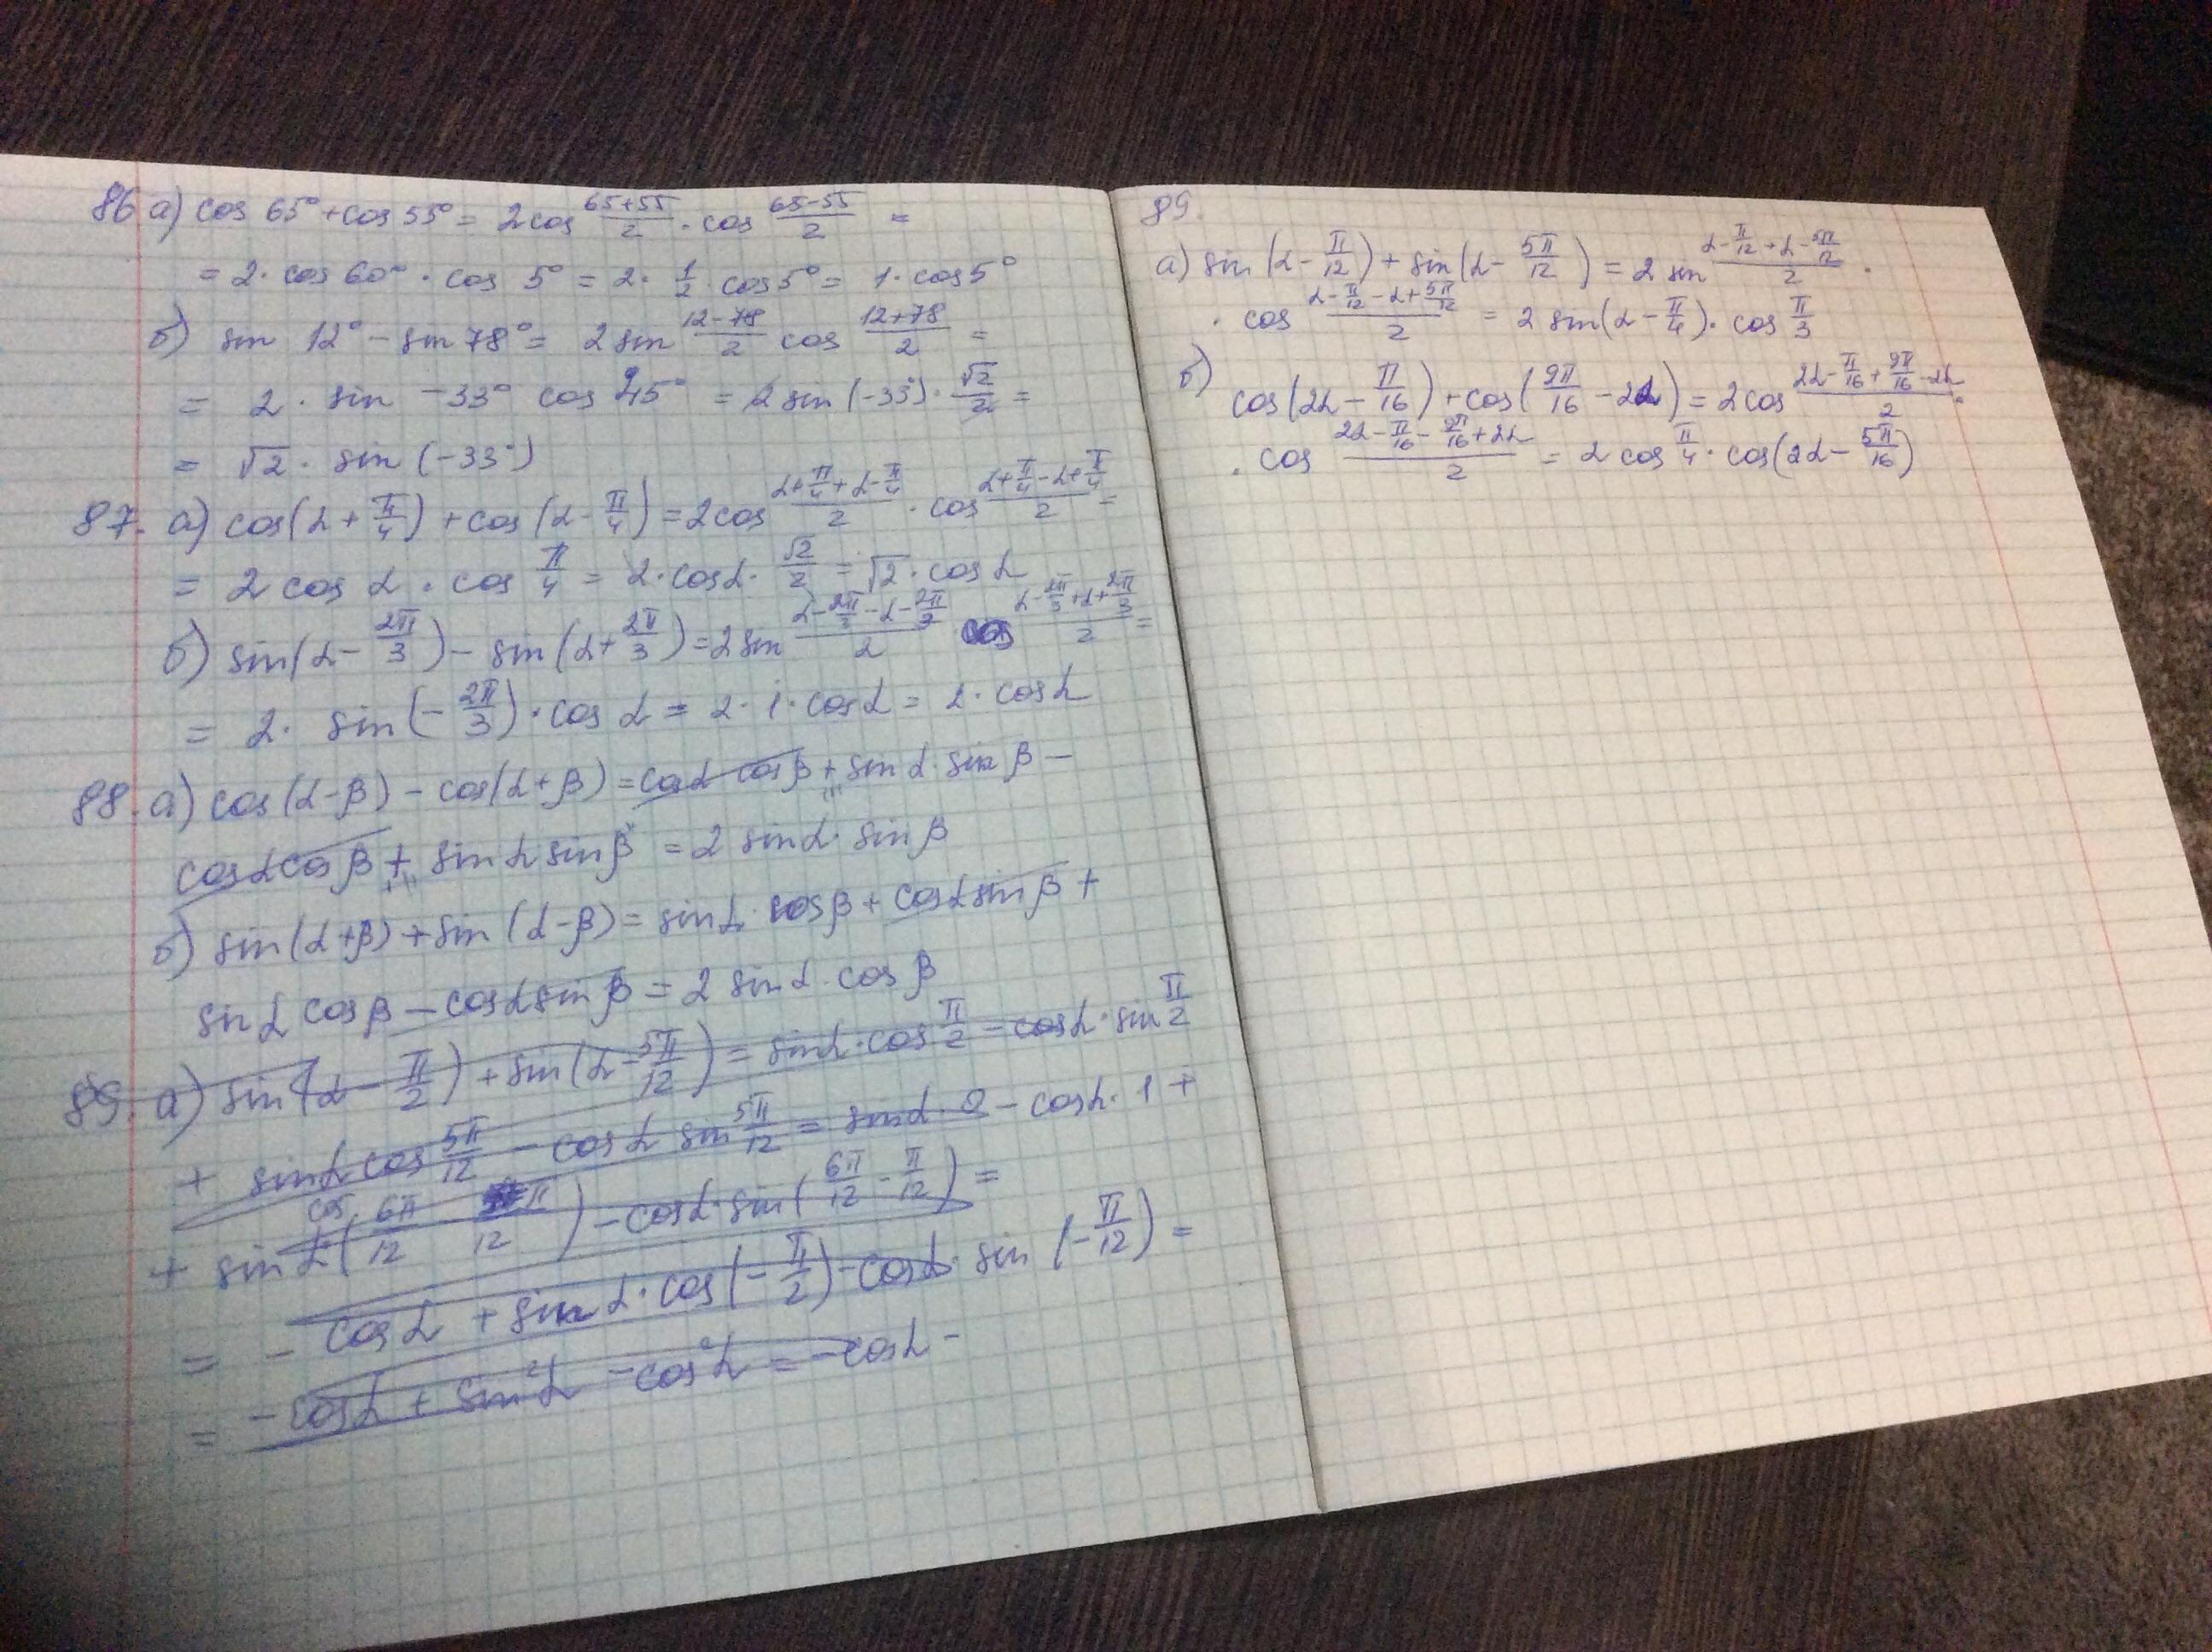 86 а) cos 65° + cos 55° = 2cos (65+55)/2 · cos (65-55)/2 =
= 2 · cos 60° · cos 5° = 2 · 1/2 · cos 5° = 1 · cos 5°
б) sin 12° - sin 78° = 2 sin (12-78)/2 cos (12+78)/2 =
= 2 · sin -33° cos 45° = 2 sin (-33°) · √2/2 =
= √2 · sin (-33°)
87. а) cos(α + π/4) + cos(α - π/4) = 2cos (α+π/4+α-π/4)/2 · cos (α+π/4-α+π/4)/2 =
= 2 cos α · cos π/4 = 2 · cos α · √2/2 = √2 · cos α
б) sin(α - 2π/3) - sin(α + 2π/3) = 2 sin (α-2π/3-α-2π/3)/2 cos (α-2π/3+α+2π/3)/2 =
= 2 · sin(-2π/3) · cos α = 2 · 1 · cos α = 2 · cos α
88. а) cos(α-β) - cos(α+β) = cos α cos β + sin α · sin β -
cos α cos β + sin α sin β = 2 sin α · sin β
б) sin(α+β) + sin(α-β) = sin α · cos β + cos α sin β +
sin α cos β - cos α sin β = 2 sin α · cos β
89. а) sin(α - π/2) + sin(α - 5π/12) = sin α · cos π/2 - cos α · sin π/2
+ sin α cos 5π/12 - cos α sin 5π/12 = sin α · 0 - cos α · 1 +
+ sin α cos (6π/12 - π/12) - cos α · sin(6π/12 - π/12) =
= - cos α + sin α · cos(-π/2) - cos α · sin(-π/12) =
= - cos α + sin²α - cos²α = - cos α -
89.
а) sin(α - π/12) + sin(α - 5π/12) = 2 sin (α-π/12+α-5π/12)/2 ·
· cos (α-π/12-α+5π/12)/2 = 2 sin(α - π/4) · cos π/3
б) cos(2α - π/16) + cos(9π/16 - 2α) = 2cos (2α-π/16+9π/16-2α)/2 ·
· cos (2α-π/16-9π/16+2α)/2 = 2 cos π/4 · cos(2α - 5π/16)